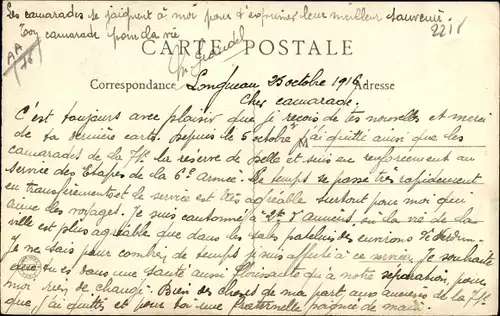 Les camarades se joignent à moi pour t'exprimer leur meilleur souvenir.
Ton camarade pour la vie
2218
CARTE POSTALE
Correspondance
Adresse
Longueau 25 octobre 1916
Cher camarade.
C'est toujours avec plaisir que je reçois de tes nouvelles et merci
de ta dernière carte. Depuis le 5 octobre j'ai quitté ainsi que les
camarades de la 74e la réserve de et suis en renforcement au
service des Etapes de la 6e Armée. Le temps se passe très rapidement
en transfèrements et le service est très agréable surtout pour moi qui
aime les voyages. Je suis cantonné à d'Amiens, où la vie de la
ville est plus agréable que dans les sales patelins des environs de Verdun.
Je ne sais pour combien de temps je suis affecté à ce service. Je souhaite
que tu es dans une santé aussi florissante qu'à notre séparation, pour
moi rien de changé. Bien des choses de ma part aux anciens de la 74e
que j'ai quittés et pour toi une fraternelle poignée de main.